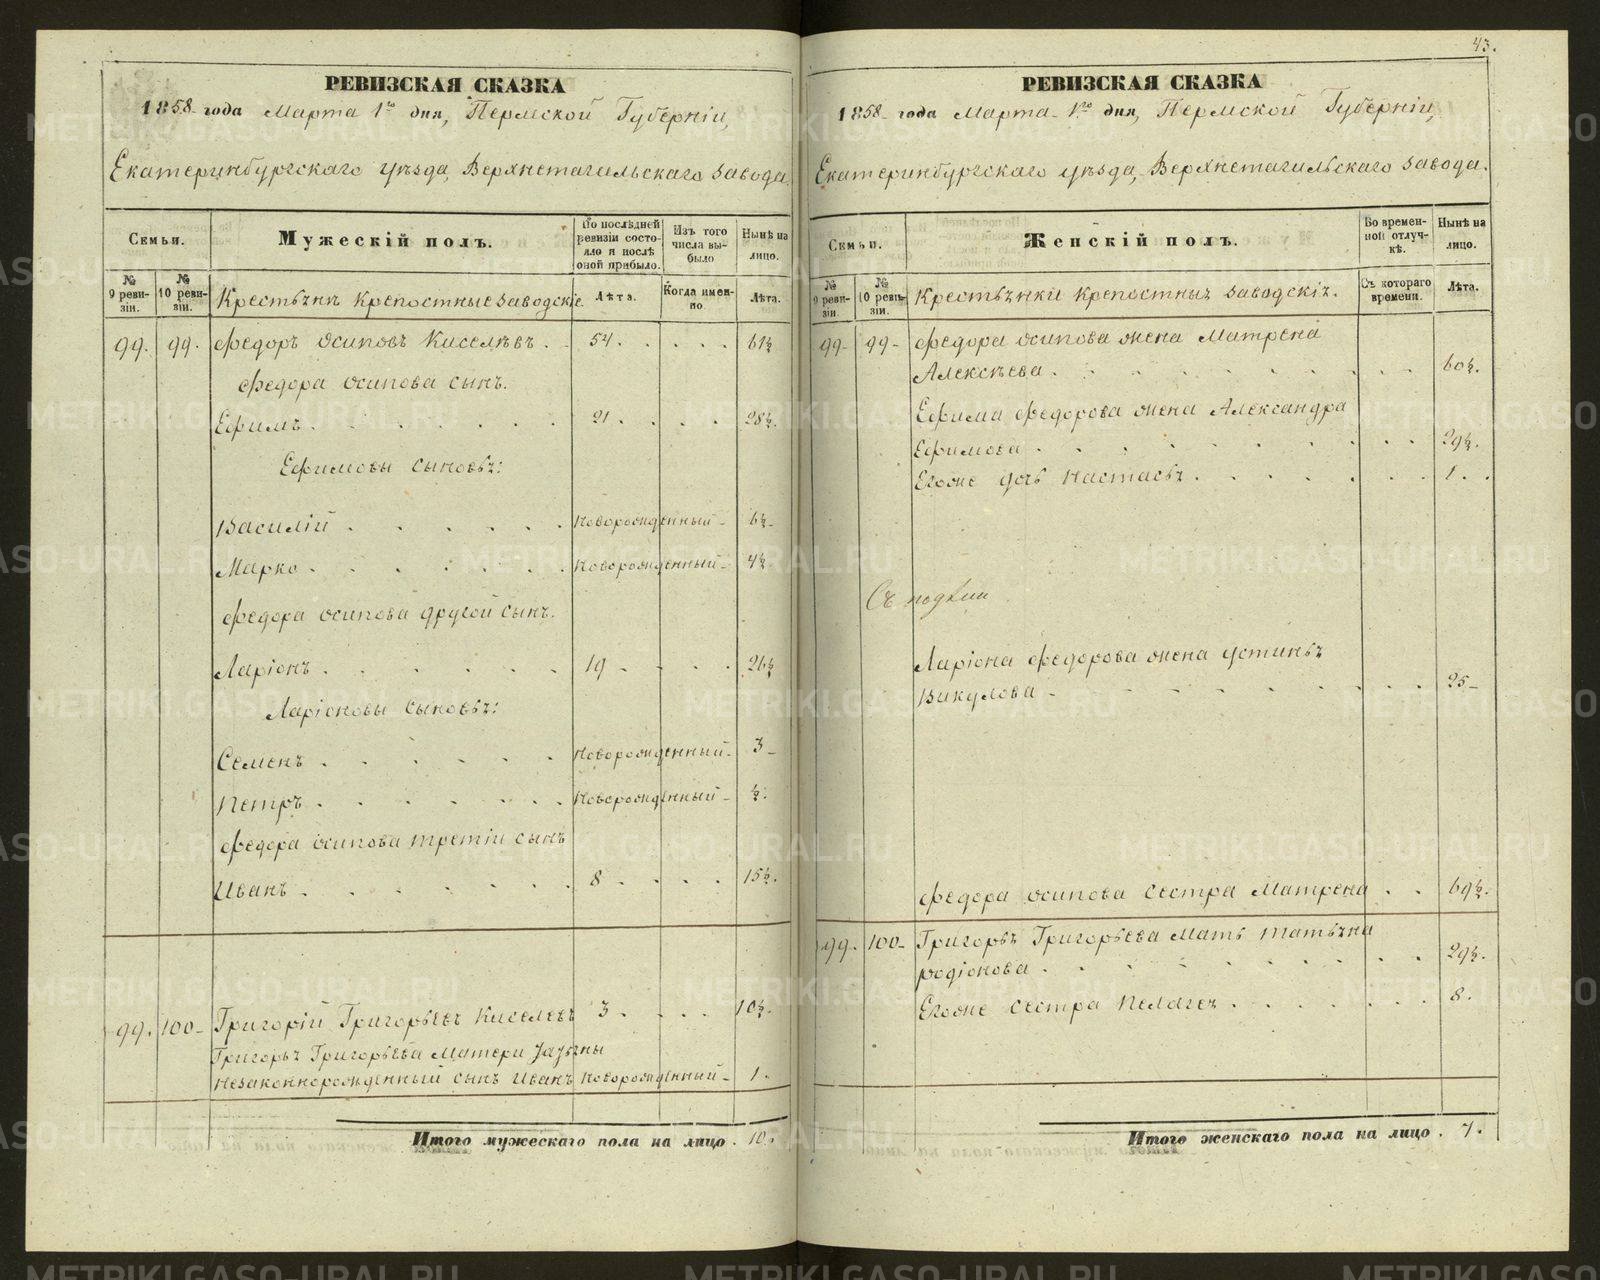 43.
РЕВИЗСКАЯ СКАЗКА
1858 года Марта 1го дня, Пермской Губерніи,
Екатеринбургскаго уѣзда, Верхнетагильскаго завода.
Семьи.
Мужескій полъ.
По послѣдней ревизіи состояло и послѣ оной прибыло.
Изъ того числа выбыло
Нынѣ на лицо.
№ 9 ревизіи.
№ 10 ревизіи.
Крестьяне крепостные заводскіе.
Лѣта.
Когда именно
Лѣта.
99. 99. Федоръ Осиповъ Киселевъ . 54 . . . . 61½
Федора Осипова сынъ.
Ефимъ . . . . . . 21 . . . . 28½.
Ефимовы сыновья:
Василій . . . . . Новорожденный - 6½ -
Марко . . . . . . Новорожденный - 4½.
Федора Осипова другой сынъ.
Ларіонъ . . . . . . 19 . . . . 26½
Ларіоновы сыновья:
Семенъ . . . . . . Новорожденный - 3 -
Петръ . . . . . . Новорожденный - ½.
Федора Осипова третій сынъ
Иванъ . . . . . . 8 . . . . 15½.
99. 100 - Григорій Григорьевъ Киселевъ 3 . . . . 10½.
Григорья Григорьева Матери
Незаконнорожденный сынъ Иванъ Новорожденный - 1.
Итого мужескаго пола на лицо . 10.
РЕВИЗСКАЯ СКАЗКА
1858 года Марта 1го дня, Пермской Губерніи,
Екатеринбургскаго уѣзда, Верхнетагильскаго завода.
Семьи.
Женскій полъ.
Во временной отлучкѣ.
Нынѣ на лицо.
№ 9 ревизіи.
№ 10 ревизіи.
Крестьянки крепостныя заводскія.
Съ котораго времени.
Лѣта.
99 - 99 - Федора Осипова жена Матрена
Алексѣева . . . . . . . . . 60½.
Ефима Федорова жена Александра
Ефимова . . . . . . . . . 29½.
Егоже дочь Настасья . . . . . . . 1 . .
Ларіона Федорова жена Устинья
Викулова . . . . . . . . . 25 -
Федора Осипова сестра Матрена . . 69½.
99. 100 - Григорья Григорьева мать Татьяна
Родіонова . . . . . . . . . 29½.
Егоже сестра Пелагея . . . . . . . 8.
Итого женскаго пола на лицо . 7.
METRIKI.GASO-URAL.RU